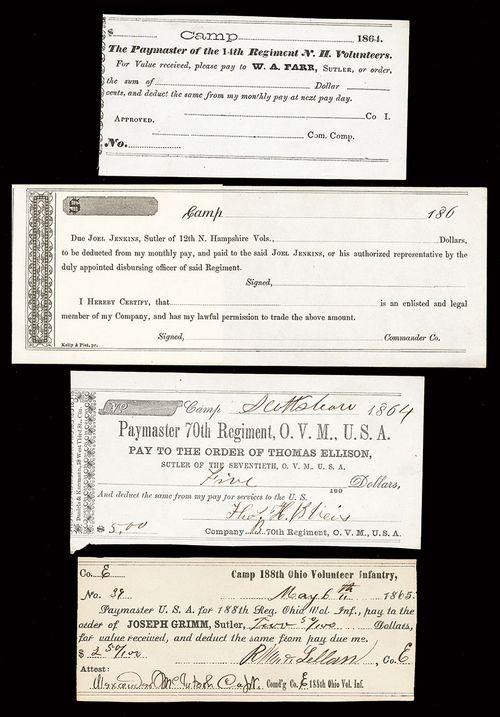 $ Camp 1864.
The Paymaster of the 14th Regiment N. H. Volunteers.
For Value received, please pay to W. A. FARR, SUTLER, or order,
the sum of Dollar
cents, and deduct the same from my monthly pay at next pay day.
Co I.
APPROVED.
Com. Comp.
No.
$
Camp 186
Due JOEL JENKINS, Sutler of 12th N. Hampshire Vols., Dollars,
to be deducted from my monthly pay, and paid to the said JOEL JENKINS, or his authorized representative by the
duly appointed disbursing officer of said Regiment.
Signed,
I HEREBY CERTIFY, that is an enlisted and legal
member of my Company, and has my lawful permission to trade the above amount.
Signed, Commander Co.
Kelly & Piet, pr.
No Camp 1864
Paymaster 70th Regiment, O. V. M., U. S. A.
PAY TO THE ORDER OF THOMAS ELLISON,
SUTLER OF THE SEVENTIETH, O. V. M. U. S. A.
Five 100 Dollars,
And deduct the same from my pay for services to the U. S.
Thos. H.
$ 5,00 Company 70th Regiment, O. V. M., U. S. A.
Co. E Camp 188th Ohio Volunteer Infantry,
No. 39 May 6th 1865
Paymaster U. S. A. for 188th Reg. Ohio Vol. Inf., pay to the
order of JOSEPH GRIMM, Sutler, Two 50/100 Dollars,
for value received, and deduct the same from pay due me.
$ 2 50/100 Co. E
Attest:
Alexander McIntosh Capt. Comd'g Co. E 188th Ohio Vol. Inf.